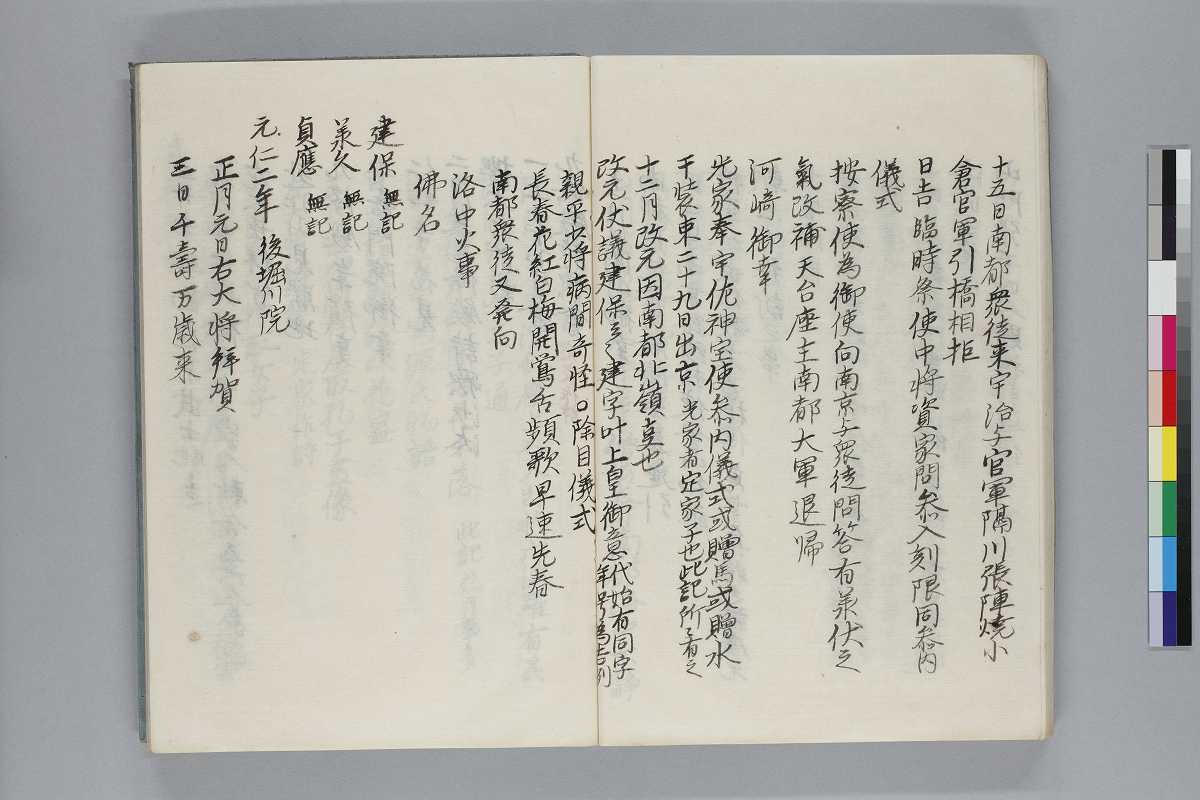 十五日南都衆徒来宇治与官軍隔川張陣焼小
倉官軍引橋相拒
日吉臨時祭使中将資家問参入刻限同参内
儀式
按察使為御使向南京与衆徒問答有承伏之
氣改補天台座主南都大軍退帰
河崎御幸
光家奉宇佐神宝使参内儀式或贈馬或贈水
干装束二十九日出京光家者定家子也此記所々有之
十二月改元因南都北嶺事也
改元仗議建保之建字叶上皇御意代始有同字
年号為吉例
親平少将病間奇怪○除目儀式
長春花紅白梅開鶯舌頻歌早速先春
南都衆徒又発向
洛中火事
佛名
建保 無記
承久 無記
貞應 無記
元仁二年 後堀川院
正月元日右大将拝賀
三日千壽万歳来